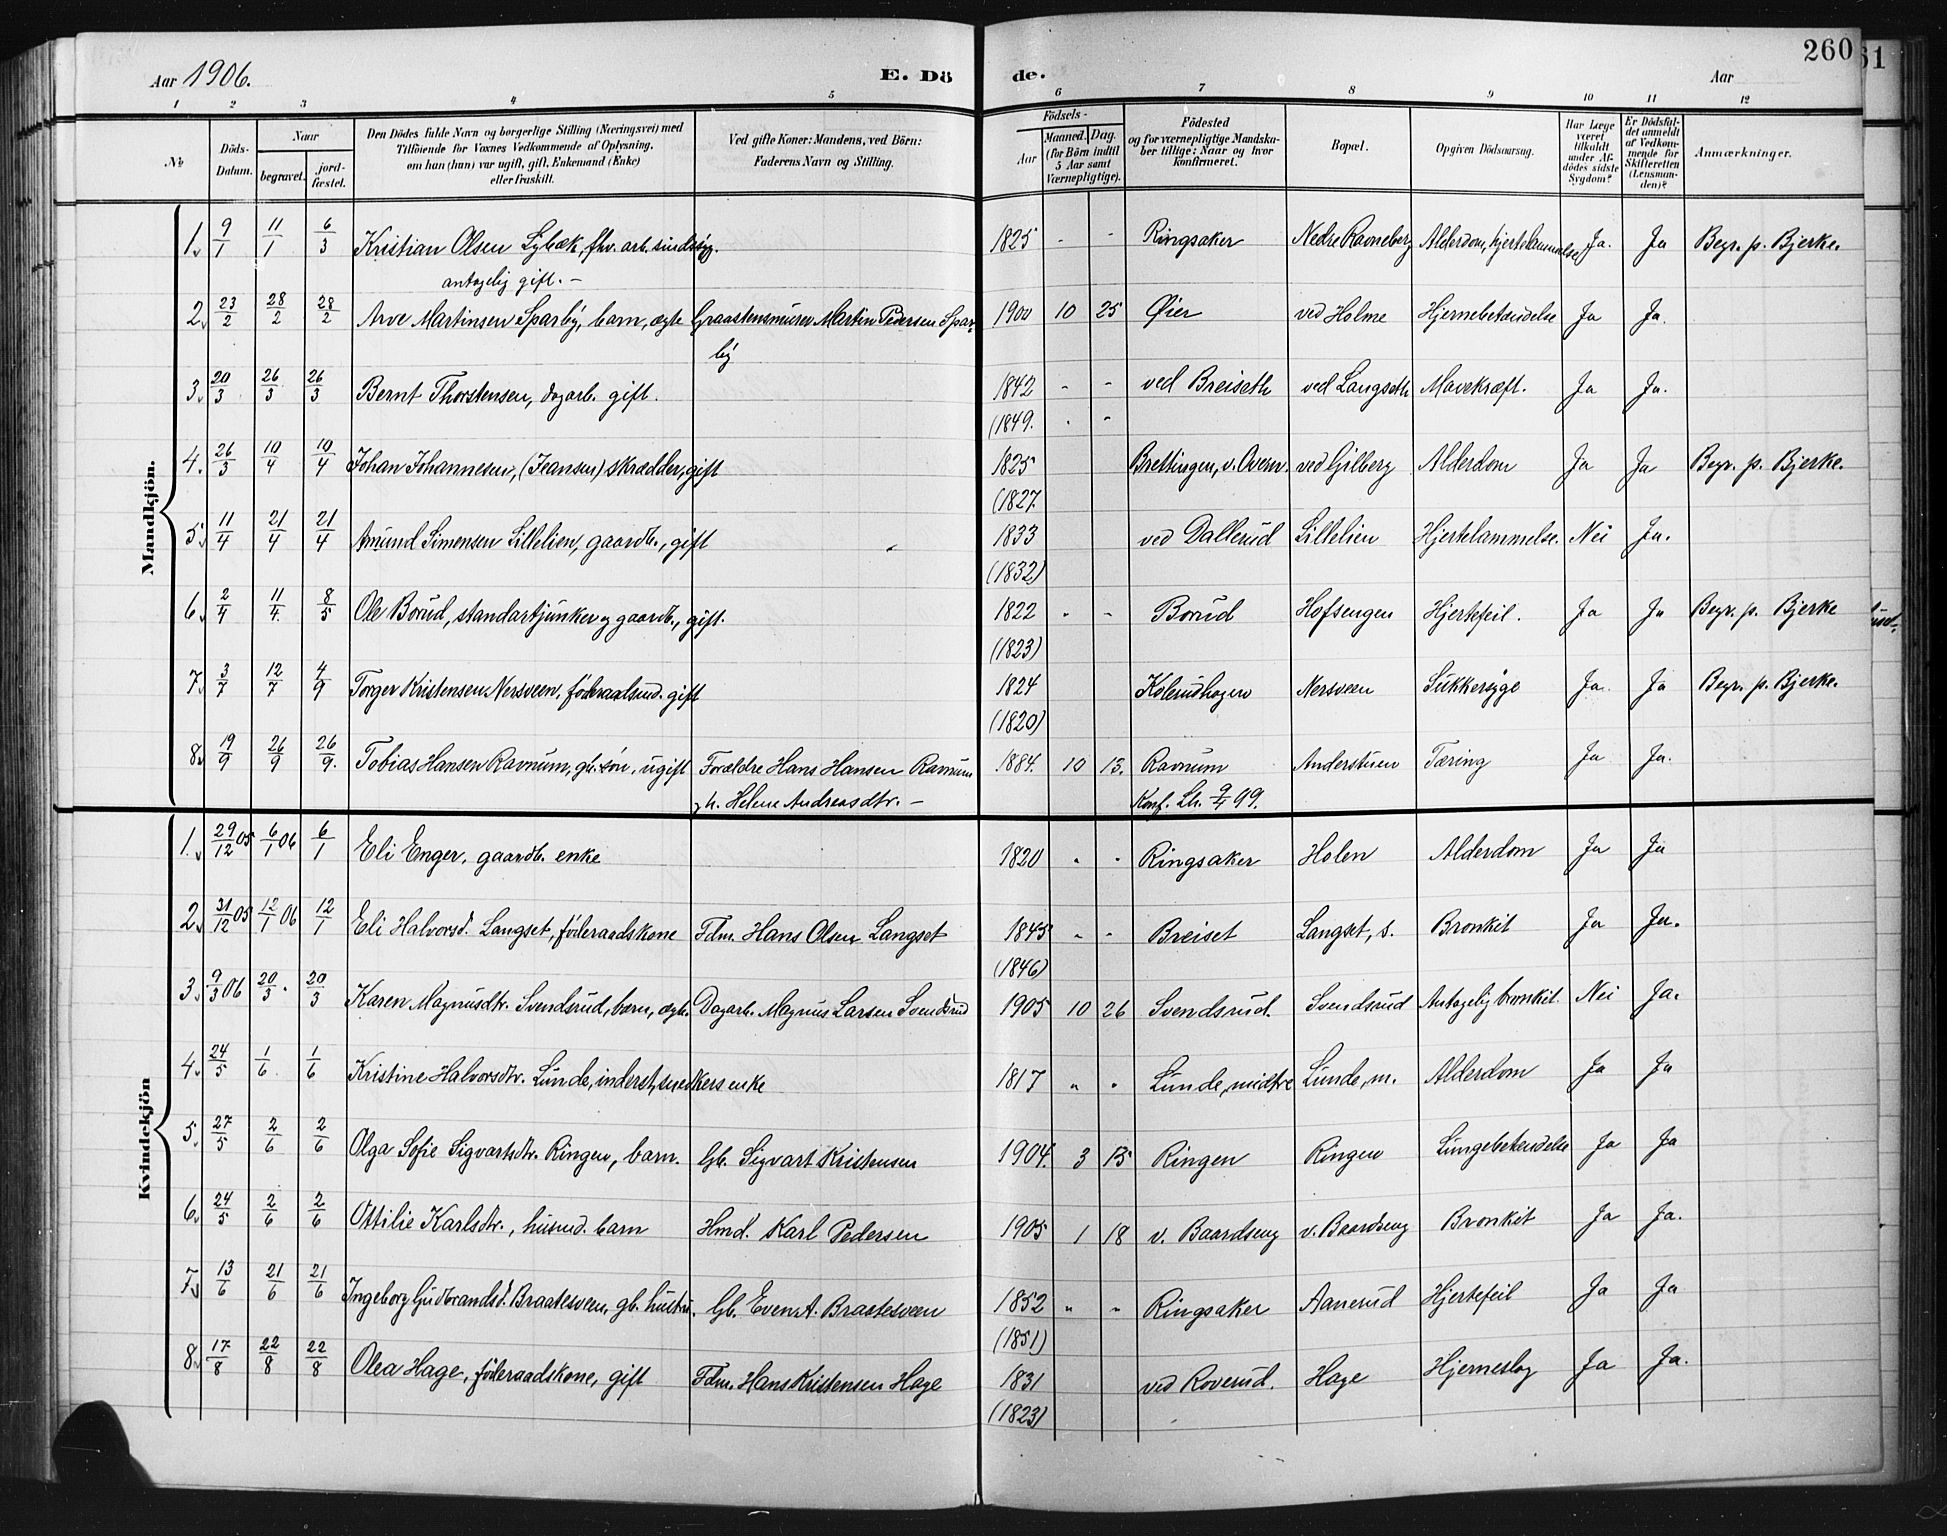 260
61
Aar 1906. E. Dö de. Aar
1 2 3 4 5 6 7 8 9 10 11 12
№ Döds-Datum. Naar begravet. jordfæstet. Den Dödes fulde Navn og borgerlige Stilling (Næringsvei) med Tilföiende for Voxnes Vedkommende af Oplysning, om han (hun) var ugift, gift, Enkemand (Enke) eller fraskilt. Ved gifte Koner: Mandens, ved Börn: Faderens Navn og Stilling. Födsels- Aar Maaned. Dag. (for Börn indtil 5 Aar samt Værnepligtige). Födested og for værnepligtige Mandskaber tillige: Naar og hvor konfirmeret. Bopæl. Opgiven Dödsaarsag. Har Læge været tilkaldt under Afdödes sidste Sygdom? Er Dödsfaldet anmeldt af Vedkommende for Skifteretten (Lensmanden)? Anmærkninger.
Mandkjön.
1. 9/1 11/1 6/3 Kristian Olsen Lybæk, fhv. arb. sindssyg. 1825 - - Ringsaker Nedre Ravneberg Alderdom, hjertelammelse Ja. Ja Begr. p. Bjerke.
antagelig gift. -
2. 23/2 28/2 28/2 Arve Martinsen Sparby, barn, ægte Graastensmurer Martin Pedersen Spar- 1900 10 25 Øier ved Holme Hjernebetændelse Ja Ja.
by
3. 20/3 26/3 26/3 Bernt Thorstensen, dagarb. gift. 1842 - - ved Breiseth ved Langseth Mavekræft. Ja Ja.
(1849. - -
4. 26/3 10/4 10/4 Johan Johannesen, (Jeansen) skrædder, gift 1825 Brettingen, v. Overn. ved Gilberg Alderdom Ja Ja Begr. p. Bjerke.
(1827.
5. 11/4 21/4 21/4 Amund Simensen Lillelien, gaardb., gift 1833 ved Dallerud Lillelien Hjertelammelse. Nei Ja.
(1832)
6. 2/4 11/4 8/5 Ole Borud, standartjunker og gaardb., gift. 1822 - - Borud Hofsengen Hjertefeil. Ja Ja Begr. p. Bjerke
(1823)
7. 3/7 12/7 4/9 Torger Kristensen Nersveen, föderaadsmd. gift 1824 Kolerudhagen Nersveen Sukkersyge Ja. Ja Begr. p. Bjerke.
(1820)
8. 19/9 26/9 26/9. Tobias Hansen Ravnum, gb. søn, ugift Forældre Hans Hansen Ravnum 1884. 10 13. Ravnum Anderstuen Tæring Ja Ja.
og h. Helene Andreasdtr. - Konf. Lh. 9/4 99.
Kvindekjön
1. 29/12 05 6/1 06 6/1 Eli Enger, gaardb. enke 1820 " " Ringsaker Holen Alderdom Ja Ja
2. 31/12 05 12/1 06 12/1 Eli Halvorsd. Langset, föderaadskone Fdm. Hans Olsen Langset 1845 " - Breiset Langset, s. Bronkit Ja Ja.
(1846)
3. 9/3 06 20/3. 20/3 Karen Magnusdtr. Svendsrud, barn, ægte. Dagarb. Magnus Larsen Svendsrud 1905 10 26 Svendsrud. Svendsrud Antagelig bronkit. Nei Ja.
4. 24/5 1/6. 1/6 Kristine Halvorsdtr. Lunde, inderst, snedkers enke 1817 " " Lunde, midtre Lunde, m. Alderdom Ja Ja
5. 27/5 2/6 2/6 Olga Sofie Sigvartsdtr. Ringen, barn. Gb. Sigvart Kristensen 1904. 3 13 Ringen Ringen Lungebetændelse Ja Ja
6. 24/5 2/6 2/6 Ottilie Karlsdtr., husmd. barn Hmd. Karl Pedersen 1905 1 18 v. Baardseng v. Baardseng Bronkit Ja Ja.
7. 13/6 21/6 21/6 Ingeborg Gudbrandsd. Braatesveen, gb. hustru. Gb. Even A. Braatesveen 1852 " " Ringsaker Aanerud Hjertefeil Ja Ja
(1851)
8. 17/8 22/8 22/8 Olea Hage, föderaadskone, gift Fdm. Hans Kristensen Hage 1831 ved Roverud. Hage Hjerneslag Ja Ja.
(1823)